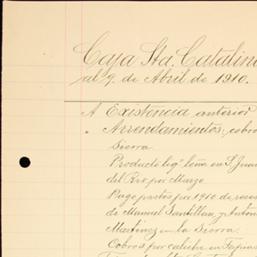 Caja Sta. Catalina
al 9 de Abril de 1910.
A Existencia anterior
" Arrendamientos, cobro
Sierra.
Producto leg." leña en S. Juan
del Rio por Marzo
Pago pastos por 1910 de
de Manuel Santillan y Anton
Martinez en la Sierra.
Cobros por cahebe en